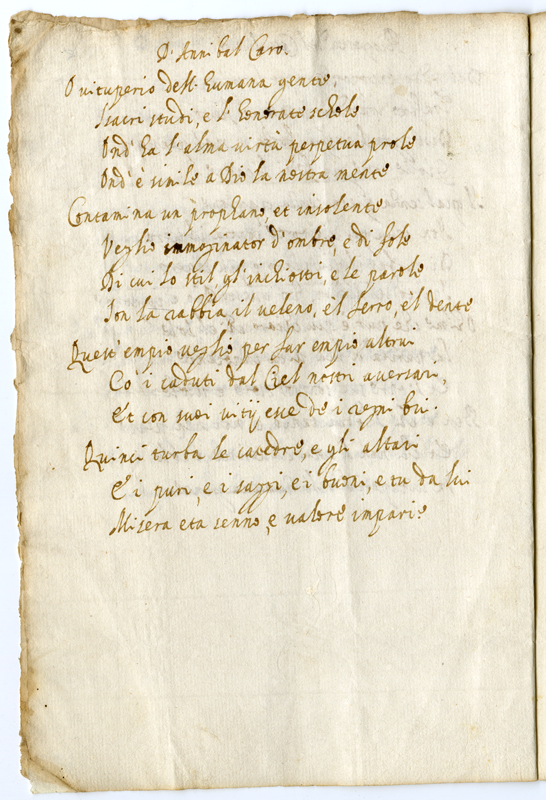 D'Annibal Caro.
O vituperio dell'humana gente,
I sacri studi, e l'honorate schole
Ond'ha l'alma virtù perpetua prole
Ond'è simile a Dio la nostra mente
Contamina un prophano, et insolente
Veglio immaginator d'ombre, e di fole
Di cui lo stil, gl'inchiostri, e le parole
Son la rabbia il veleno, e'l ferro, e'l dente
Quest'empio veglio per far empio altrui
Co' i caduti dal Ciel nostri aversari,
Et con suoi vitij esce de i regni bui:
Quinci turba le catedre, e gli altari
E i puri, e i saggi, e i buoni, e tu da lui
Misera eta senno, e valore impari?